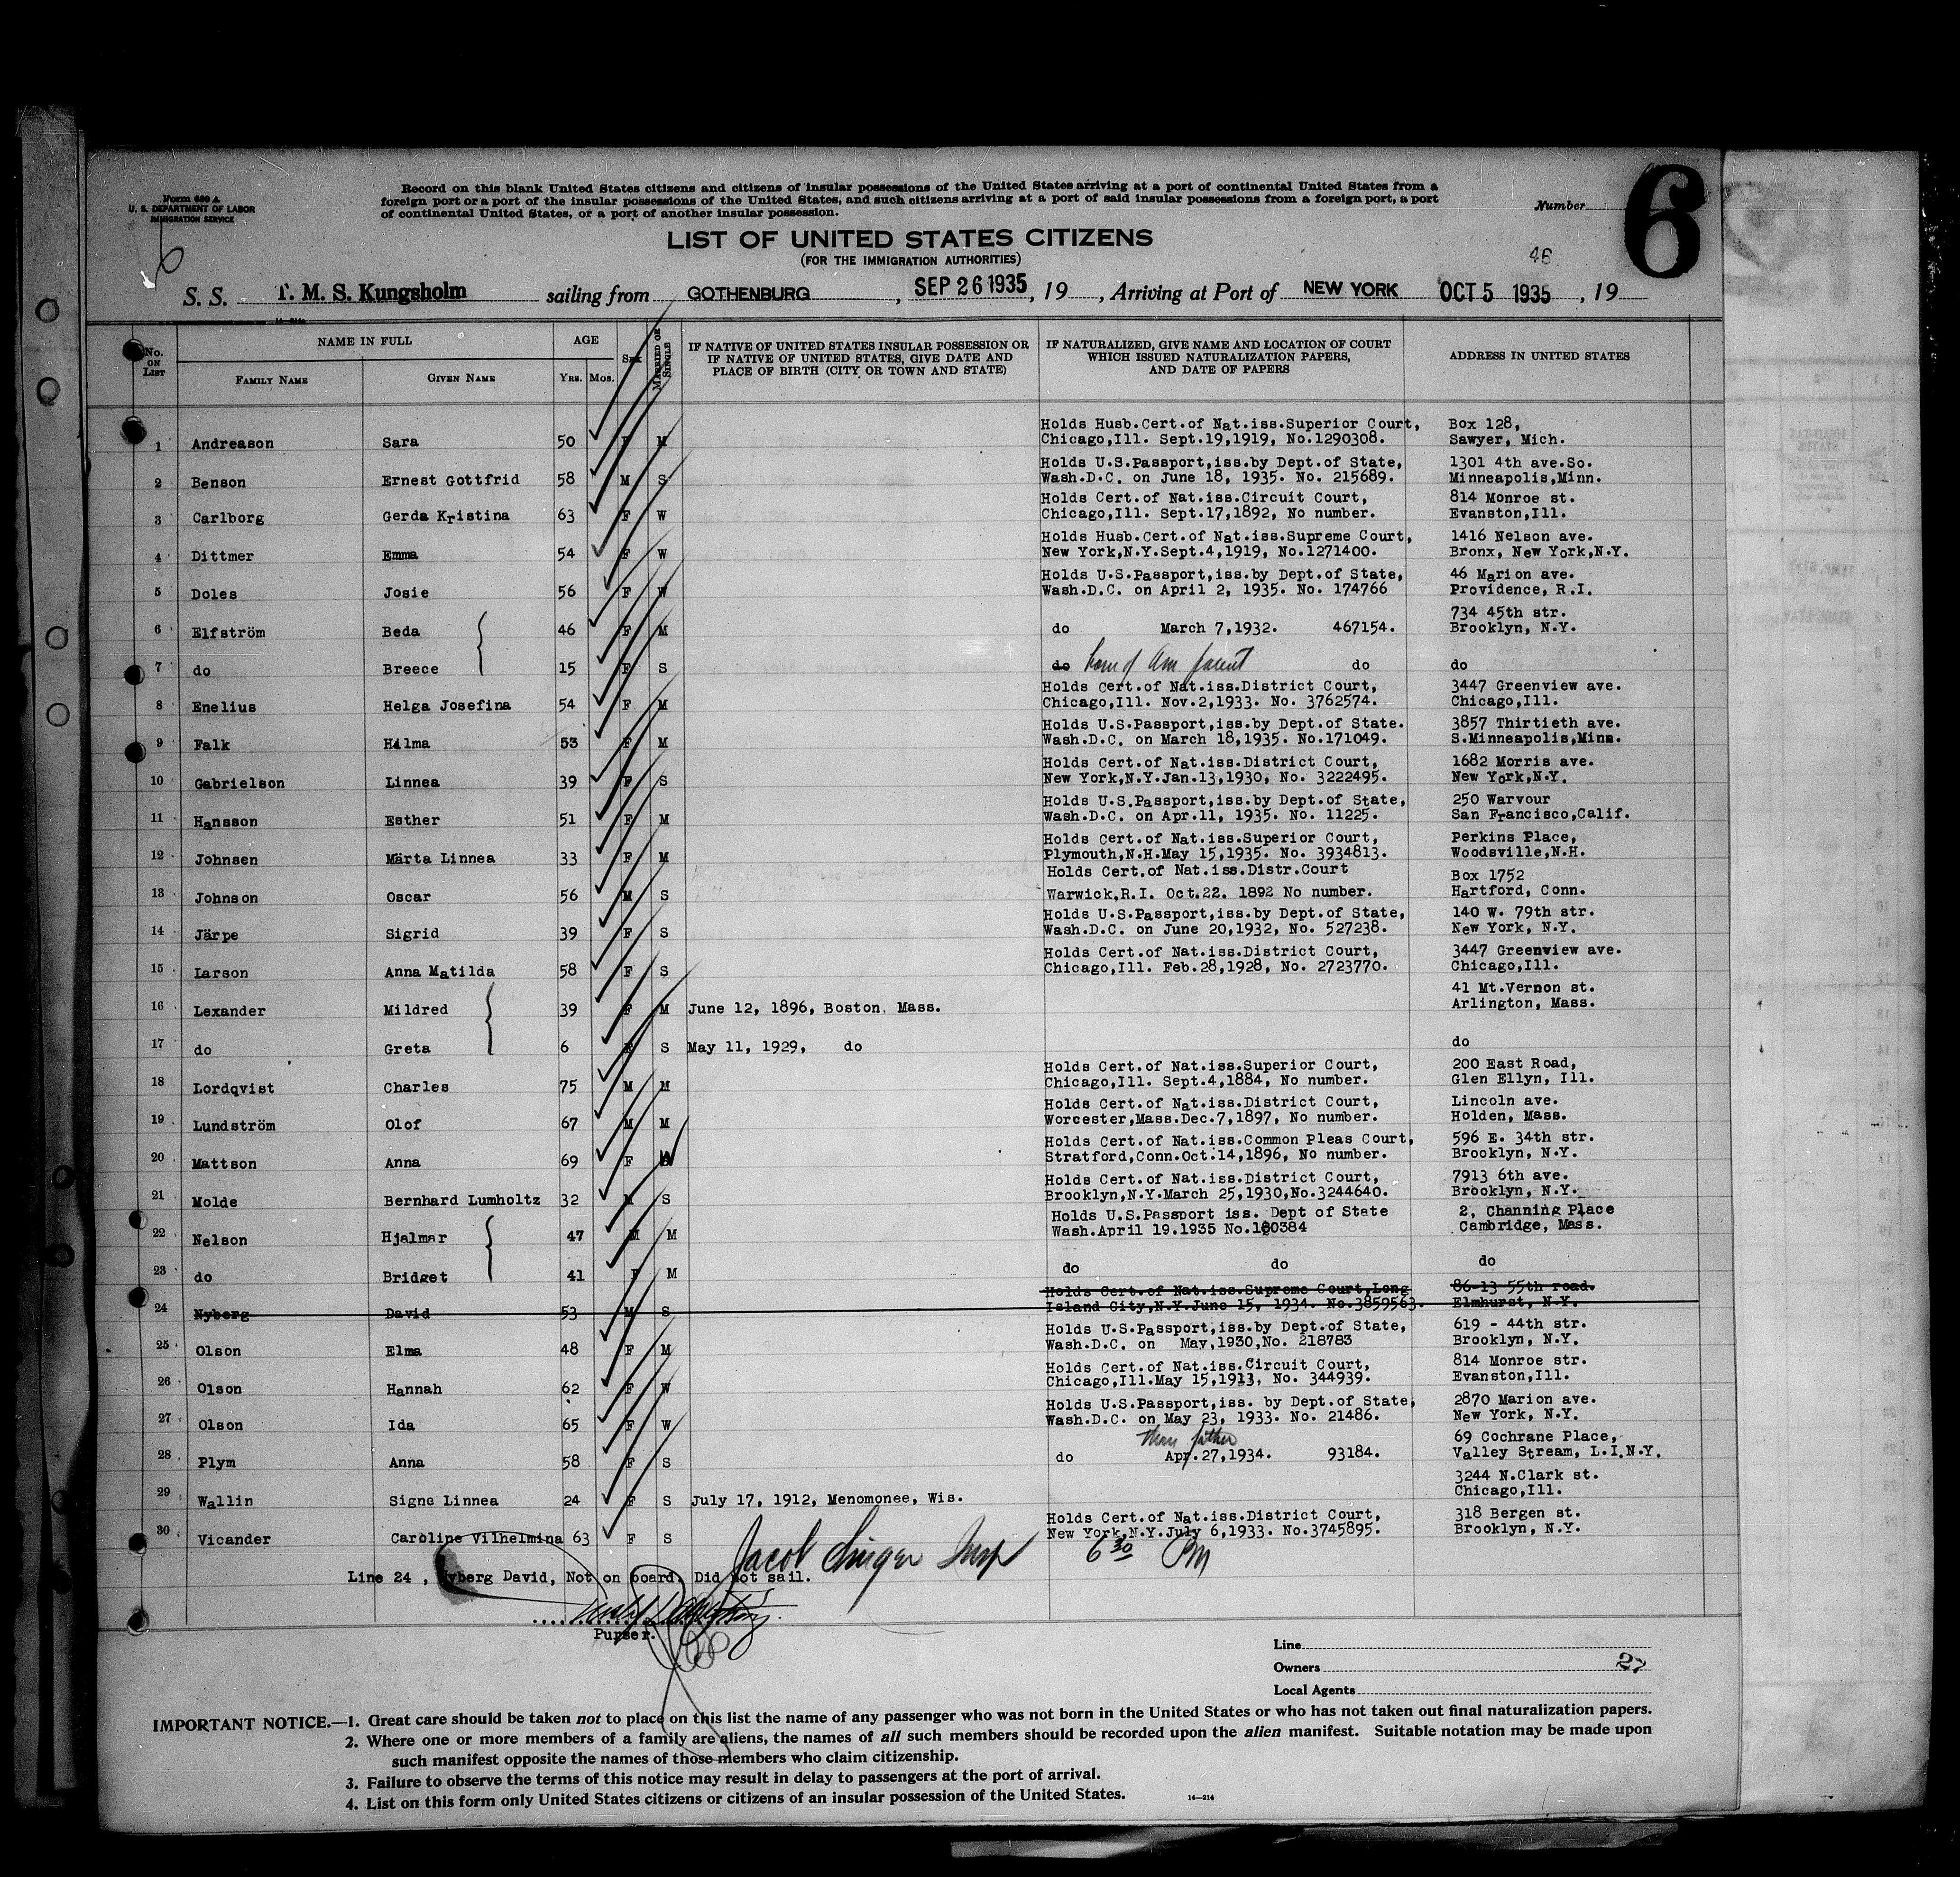 Form 630 A
U. S. DEPARTMENT OF LABOR
IMMIGRATION SERVICE
Record on this blank United States citizens and citizens of insular possessions of the United States arriving at a port of continental United States from a
foreign port or a port of the insular possessions of the United States, and such citizens arriving at a port of said insular possessions from a foreign port, a port
of continental United States, or a port of another insular possession.
Number 6
LIST OF UNITED STATES CITIZENS
(FOR THE IMMIGRATION AUTHORITIES)
46
S. S. T. M. S. Kungsholm sailing from GOTHENBURG, SEP 26 1935, 19 , Arriving at Port of NEW YORK OCT 5 1935, 19
No. ON LIST
NAME IN FULL
FAMILY NAME
GIVEN NAME
AGE
YRS. MOS.
SEX
MARRIED OR SINGLE
IF NATIVE OF UNITED STATES INSULAR POSSESSION OR
IF NATIVE OF UNITED STATES, GIVE DATE AND
PLACE OF BIRTH (CITY OR TOWN AND STATE)
IF NATURALIZED, GIVE NAME AND LOCATION OF COURT
WHICH ISSUED NATURALIZATION PAPERS,
AND DATE OF PAPERS
ADDRESS IN UNITED STATES
Holds Husb.Cert.of Nat.iss.Superior Court, Box 128,
1 Andreason Sara 50 F M Chicago,Ill. Sept.19,1919, No.1290308. Sawyer, Mich.
Holds U.S.Passport,iss.by Dept.of State, 1301 4th ave.So.
2 Benson Ernest Gottfrid 58 M S Wash.D.C. on June 18, 1935. No. 215689. Minneapolis,Minn.
Holds Cert.of Nat.iss.Circuit Court, 814 Monroe st.
3 Carlborg Gerda Kristina 63 F W Chicago,Ill. Sept.17,1892, No number. Evanston,Ill.
Holds Husb.Cert.of Nat.iss.Supreme Court, 1416 Nelson ave.
4 Dittmer Emma 54 F W New York,N.Y.Sept.4,1919, No.1271400. Bronx, New York,N.Y.
Holds U.S.Passport,iss.by Dept.of State, 46 Marion ave.
5 Doles Josie 56 F W Wash.D.C. on April 2, 1935. No. 174766 Providence, R.I.
734 45th str.
6 Elfström Beda 46 F M do March 7,1932. 467154. Brooklyn, N.Y.
7 do Breece 15 F S do born of Am parent do do
Holds Cert.of Nat.iss.District Court, 3447 Greenview ave.
8 Enelius Helga Josefina 54 F M Chicago,Ill. Nov.2,1933. No. 3762574. Chicago,Ill.
Holds U.S.Passport,iss.by Dept.of State. 3857 Thirtieth ave.
9 Falk Hilma 53 F M Wash.D.C. on March 18,1935. No.171049. S.Minneapolis,Minn.
Holds Cert.of Nat.iss.District Court, 1682 Morris ave.
10 Gabrielson Linnea 39 F S New York,N.Y.Jan.13,1930, No. 3222495. New York,N.Y.
Holds U.S.Passport,iss.by Dept.of State, 250 Warvour
11 Hansson Esther 51 F M Wash.D.C. on Apr.11, 1935. No. 11225. San Francisco,Calif.
Holds Cert.of Nat.iss.Superior Court, Perkins Place,
12 Johnsen Märta Linnea 33 F M Plymouth,N.H.May 15,1935. No. 3934813. Woodsville,N.H.
Holds Cert.of Nat.iss.Distr.Court Box 1752
13 Johnson Oscar 56 M S Warwick,R.I. Oct.22. 1892 No number. Hartford, Conn.
Holds U.S.Passport,iss.by Dept.of State, 140 W. 79th str.
14 Järpe Sigrid 39 F S Wash.D.C. on June 20,1932, No. 527238. New York, N.Y.
Holds Cert.of Nat.iss.District Court, 3447 Greenview ave.
15 Larson Anna Matilda 58 F S Chicago,Ill. Feb.28,1928, No. 2723770. Chicago,Ill.
41 Mt.Vernon st.
16 Lexander Mildred 39 F M June 12, 1896, Boston, Mass. Arlington, Mass.
17 do Greta 6 F S May 11, 1929, do do
Holds Cert.of Nat.iss.Superior Court, 200 East Road,
18 Lordqvist Charles 75 M M Chicago,Ill. Sept.4,1884, No number. Glen Ellyn, Ill.
Holds Cert.of Nat.iss.District Court, Lincoln ave.
19 Lundström Olof 67 M M Worcester,Mass.Dec.7,1897, No number. Holden, Mass.
Holds Cert.of Nat.iss.Common Pleas Court, 596 E. 34th str.
20 Mattson Anna 69 F W Stratford,Conn.Oct.14,1896, No number. Brooklyn, N.Y.
Holds Cert.of Nat.iss.District Court, 7913 6th ave.
21 Molde Bernhard Lumholtz 32 M S Brooklyn,N.Y.March 25,1930,No.3244640. Brooklyn, N.Y.
Holds U.S.Passport iss. Dept of State 2, Channing Place
22 Nelson Hjalmar 47 M M Wash.April 19.1935 No.180384 Cambridge, Mass.
23 do Bridget 41 F M do do do
Holds Cert.of Nat.iss.Supreme Court,Long 86-13 55th road.
24 Nyberg David 53 M S Island City,N.Y.June 15, 1934. No.3859563. Elmhurst, N.Y.
Holds U.S.Passport,iss.by Dept.of State, 619 - 44th str.
25 Olson Elma 48 F M Wash.D.C. on May,1930,No. 218783 Brooklyn, N.Y.
Holds Cert.of Nat.iss.Circuit Court, 814 Monroe str.
26 Olson Hannah 62 F W Chicago,Ill.May 15,1913, No. 344939. Evanston,Ill.
Holds U.S.Passport,iss. by Dept.of State, 2870 Marion ave.
27 Olson Ida 65 F W Wash.D.C. on May 23, 1933. No. 21486. New York, N.Y.
father 69 Cochrane Place,
28 Plym Anna 58 F S do Apr.27,1934. 93184. Valley Stream, L.I.N.Y.
3244 N.Clark st.
29 Wallin Signe Linnea 24 F S July 17, 1912, Menomonee, Wis. Chicago,Ill.
Holds Cert.of Nat.iss.District Court, 318 Bergen st.
30 Vicander Caroline Vilhelmina 63 F S New York,N.Y.July 6,1933. No.3745895. Brooklyn, N.Y.
Jacob Singer Insp 6 30 PM
Line 24 , Nyberg David, Not on board. Did not sail.
Purser.
Line
Owners 27
Local Agents
IMPORTANT NOTICE.—1. Great care should be taken not to place on this list the name of any passenger who was not born in the United States or who has not taken out final naturalization papers.
2. Where one or more members of a family are aliens, the names of all such members should be recorded upon the alien manifest. Suitable notation may be made upon
such manifest opposite the names of those members who claim citizenship.
3. Failure to observe the terms of this notice may result in delay to passengers at the port of arrival.
4. List on this form only United States citizens or citizens of an insular possession of the United States.
14—214